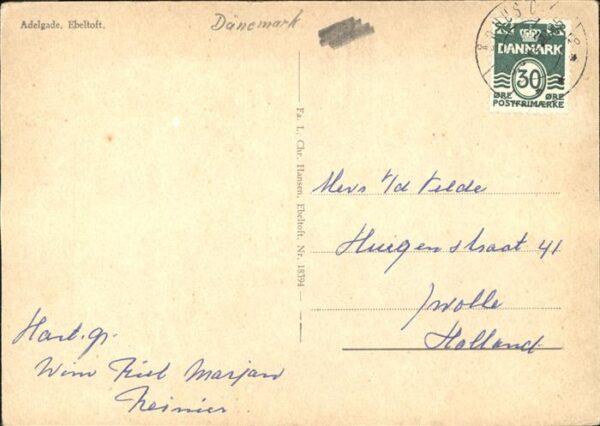 Adelgade, Ebeltoft.
Dänemark
DANMARK
30
ØRE ØRE
POSTFRIMÆRKE
Fa. L. Chr. Hansen, Ebeltoft. Nr. 18394
Mevs v/d Velde
Huigenstraat 41
Zwolle
Holland
Hart. gr.
Wim Riel Marjan
Reinier.